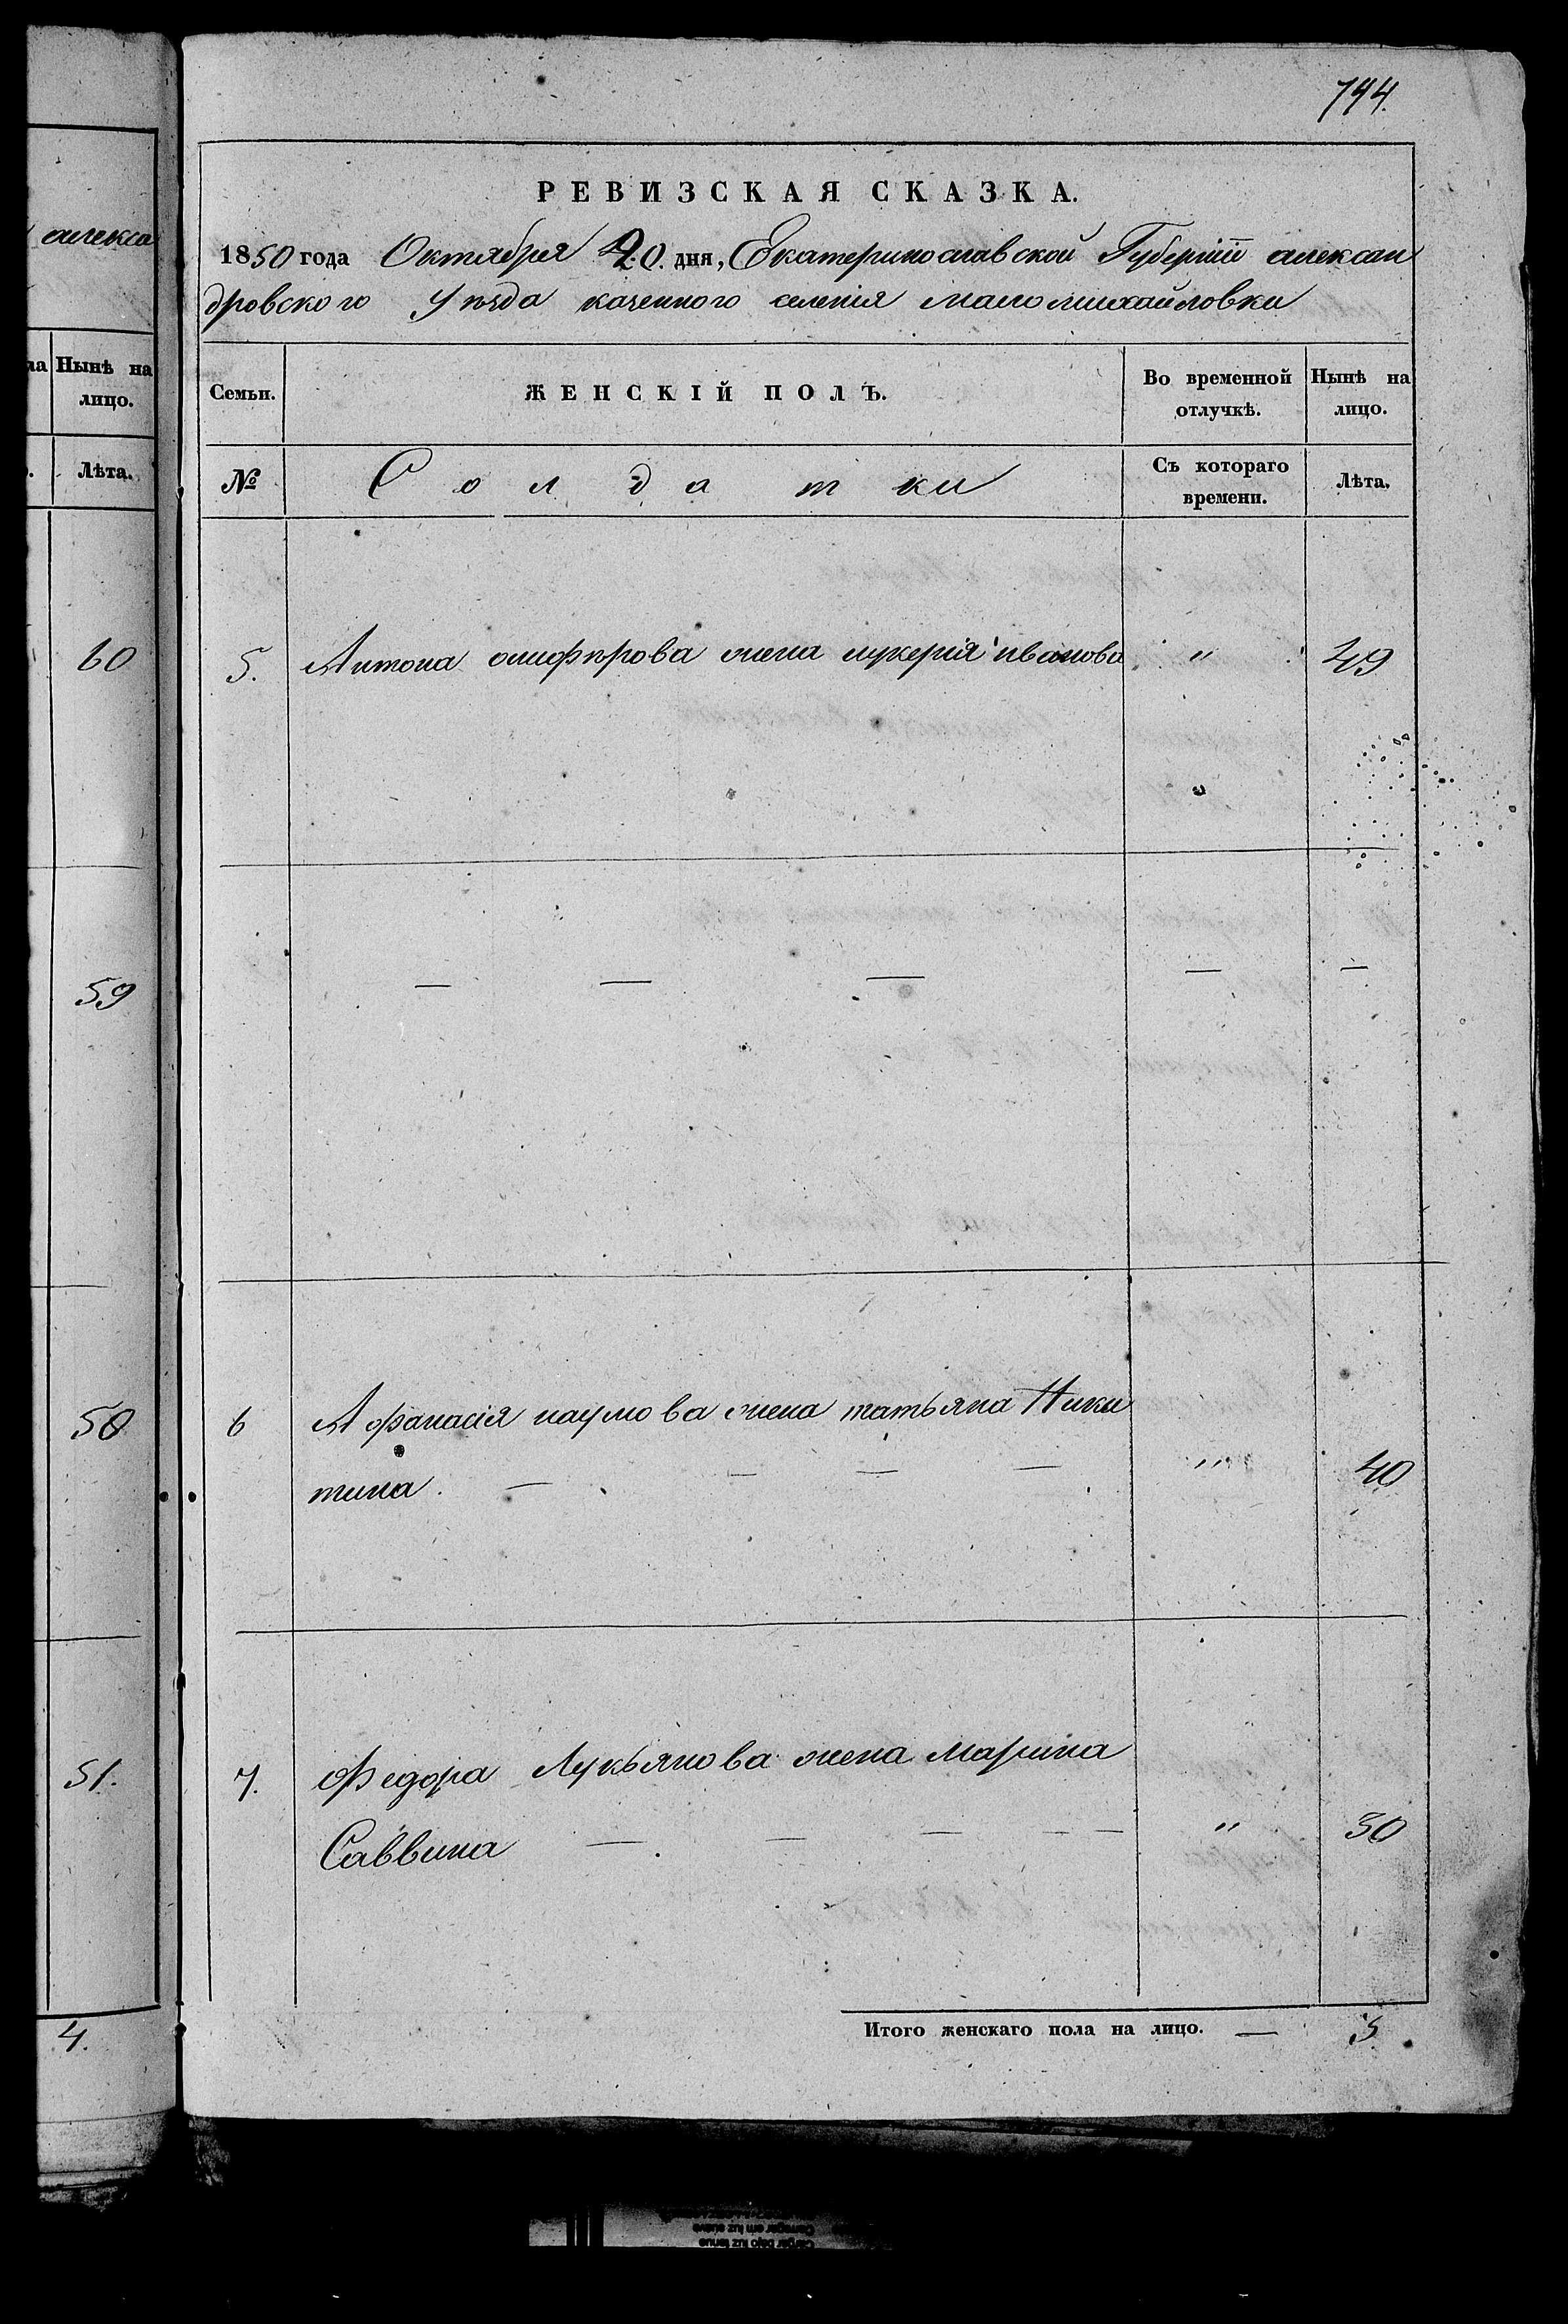 744.
РЕВИЗСКАЯ СКАЗКА.
1850 года Октября 20. дня, Екатеринославской Губерніи алексан
дровского Уезда казенного селенія маломихайловки
Семьи.
ЖЕНСКІЙ ПОЛЪ.
Во временной отлучкѣ.
Нынѣ на лицо.
№
Солдатки
Съ котораго времени.
Лѣта.
5. Антона олиферова жена лукерія иванова " 49
"
— — — — —
6 Афанасія наумова жена татьяна Ники
тина. — — — — " 40
7. Федора Лукьянова жена марина
Саввина — — — — — " 30
Итого женскаго пола на лицо. — 3.
алекса
на
Нынѣ на
лицо.
Лѣта.
60
59
50
51.
4.